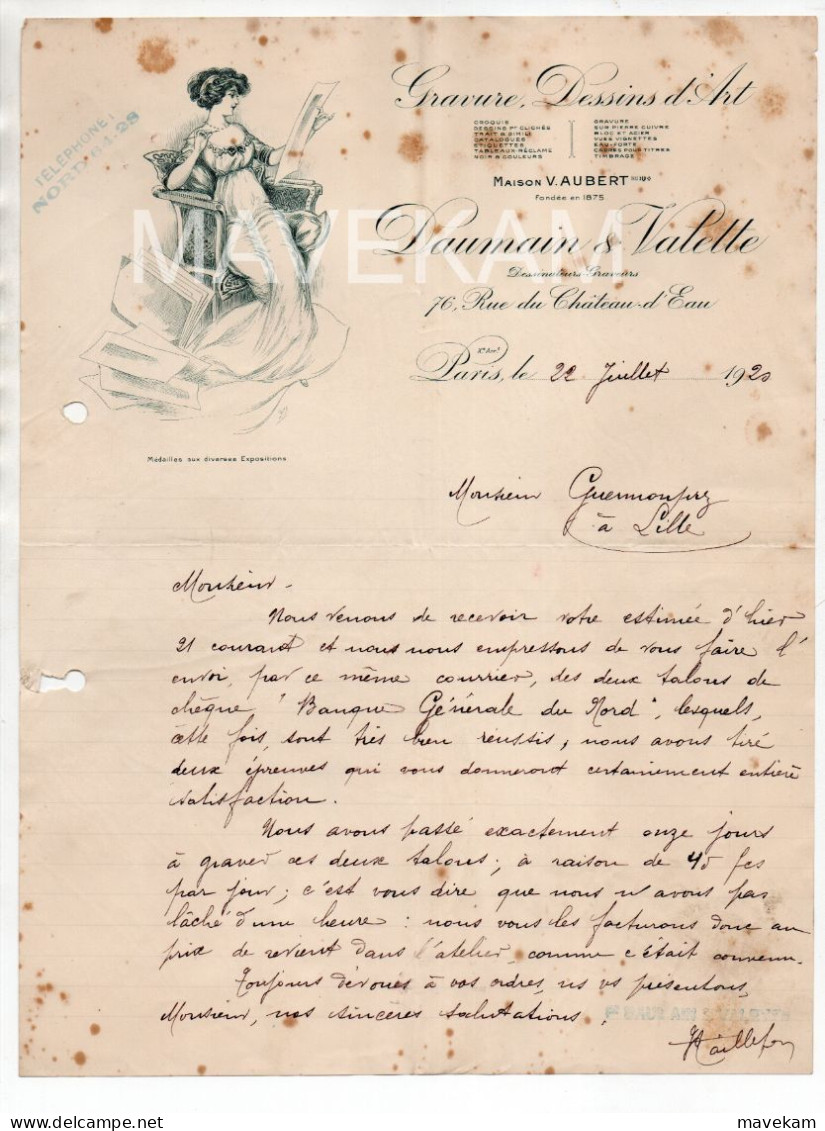 Gravure, Dessins d'Art
CROQUIS
DESSINS Pr CLICHÉS
TRAIT & SIMILI
CATALOGUES
ETIQUETTES
TABLEAUX-RÉCLAME
NOIR & COULEURS
GRAVURE
SUR PIERRE CUIVRE
BLOC ET ACIER
VUES VIGNETTES
EAU-FORTE
CADRES POUR TITRES
TIMBRAGE
TÉLÉPHONE:
NORD
MAISON V. AUBERT
fondée en 1875
MAVEKAM
Daumain & Valette
Dessinateurs-Graveurs
76, Rue du Château-d'Eau
Paris, le 22 Juillet 1920
Médailles aux diverses Expositions
Monsieur Guermonprez
à Lille
Monsieur -
Nous venons de recevoir votre estimée d'hier
21 courant et nous nous empressons de vous faire l'
envoi, par ce même courrier, des deux talons de
chèque "Banque Générale du Nord", lesquels,
cette fois, sont très bien réussis; nous avons tiré
deux épreuves qui vous donneront certainement entière
satisfaction.
Nous avons passé exactement onze jours
à graver ces deux talons; à raison de 45 fcs
par jour; c'est vous dire que nous n'avons pas
lâché d'une heure: nous vous les facturons donc au
prix de revient dans l'atelier, comme c'était convenu.
Toujours dévoués à vos ordres, ns vs présentons,
Monsieur, nos sincères salutations.
DAUMAIN & VALETTE
delcampe.net
mavekam